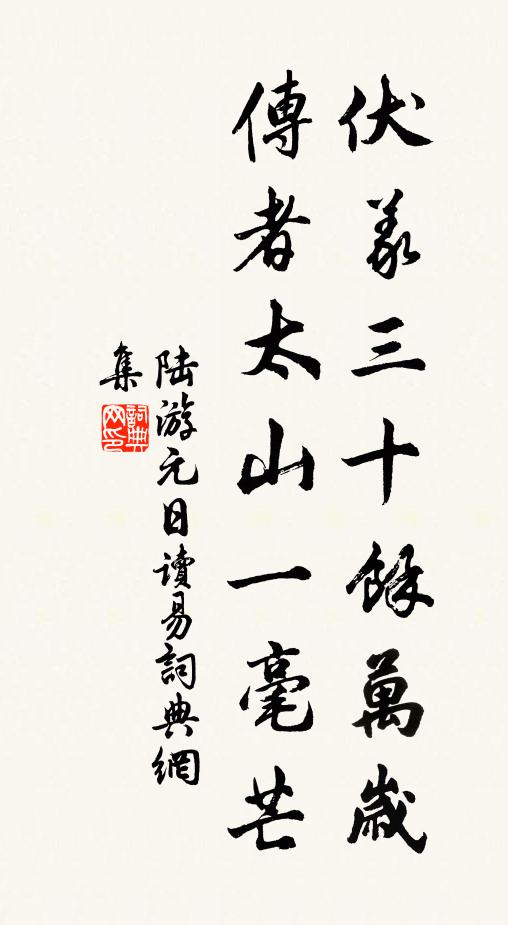 伏羲三十餘萬歲
傳者太山一毫芒
陸游元日讀易詞典網
集
詞典網印